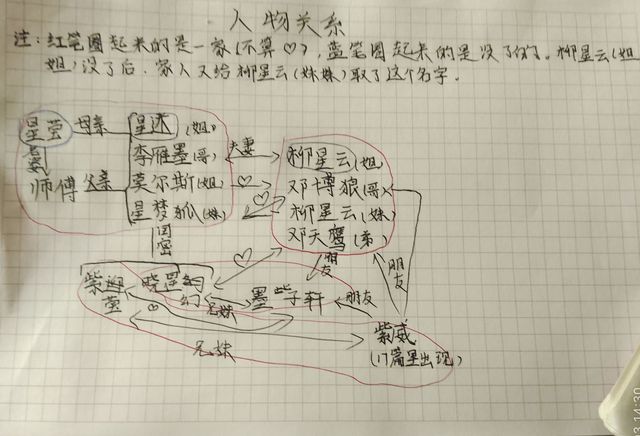 人物关系
注:红笔圈起来的是一家(不算♡),蓝笔圈起来的是没了的。柳星云(姐
姐)没了后,家人又给柳星云(妹妹)取了这个名字。
星莹 母亲 星迷(姐)
老婆 李雁墨(哥) 夫妻 柳星云(姐
师傅 父亲 莫尔斯(姐) ♡ 邓博狼(哥)
星梦狐(妹) ♡ 柳星云(妹)
闺密 邓天鹰(弟)
♡ 朋友 朋友
紫 晓星幻 墨紫轩 朋友
萤 ♡ 兄妹
兄妹 紫威
(17篇里出现)
3 14:30